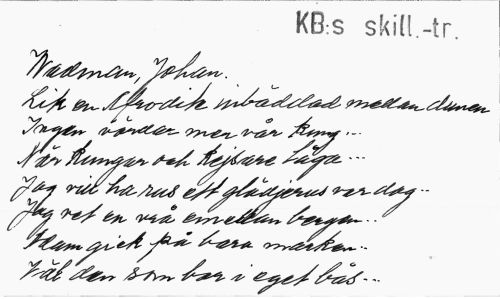 KB:s skill.-tr.
Wadman, Johan.
Lik en Afrodite inbäddad mellan dunen
Ingen vårdar mer vår kung...
När Kungar och Kejsare låga...
Jag vill ha rus ett glädjerus var dag..
Jag vet en vrå emellan bergen..
Han gick på bara marken..
Väl den som bor i eget bås...